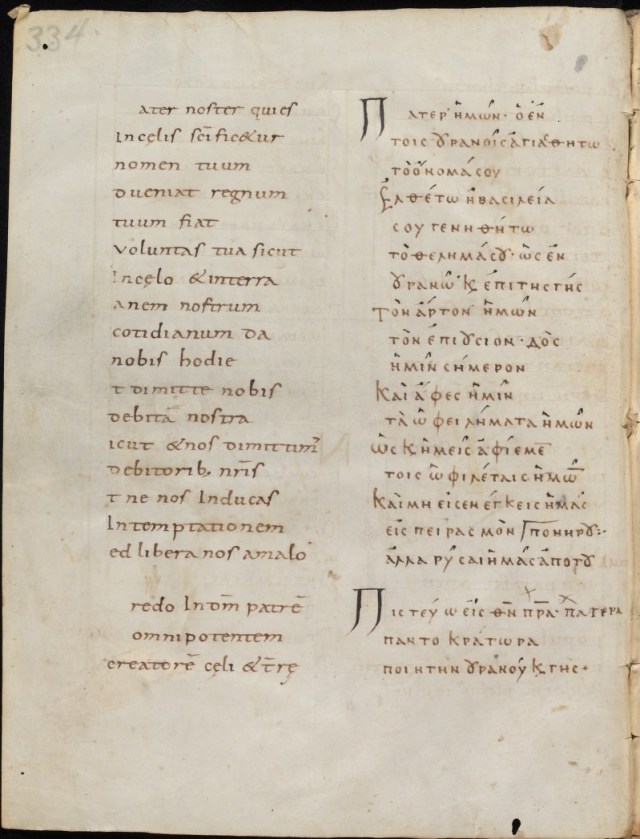 334.
ater noster qui es
In celis scīficetur
nomen tuum
dueniat regnum
tuum fiat
voluntas tua sicut
In celo & in terra
anem nostrum
cotidianum da
nobis hodie
t dimitte nobis
debita nostra
icut & nos dimittim
debitorib; nr̄is
t ne nos Inducas
In temptationem
ed libera nos a malo
redo In dm̄ patrē
omnipotentem
creatorē cęli & t̄rę
Πατερ ἡμῶν· ὁ ἐν
τοις ȣρανοῖς ἁγιασθητω
τὸ ὄνομά σου
Ἐλθέτω ἡ βασιλεία
σου γενηθήτω
τὸ θελημά σȣ· ὡς ἐν
ȣρανῶ ϗ ἐπι της γῆς
τὸν ἄρτον ἡμῶν
τὸν ἐπιȣσιον· δὸς
ἡμῖν σήμερον
Καὶ ἄφες ἡμῖν
τὰ ὠφειλήματα ἡμῶν
ὡς ϗ ἡμεῖς ἀφίεμε̄
τοις ὠφιλέταις ἡμῶ̄
Καὶ μη εἰσενέγκεις ἡμᾶς
εἰς πειρασμὸν
ἀλλα ρῦσαι ἡμᾶς ἀπο τȣ
πονηρȣ:·
Πιστεύω εἰς θ̅ν̅ π̅ρ̅α̅· πατερα
παντοκράτωρα
ποιητην ȣρανοῦ ϗ γης·